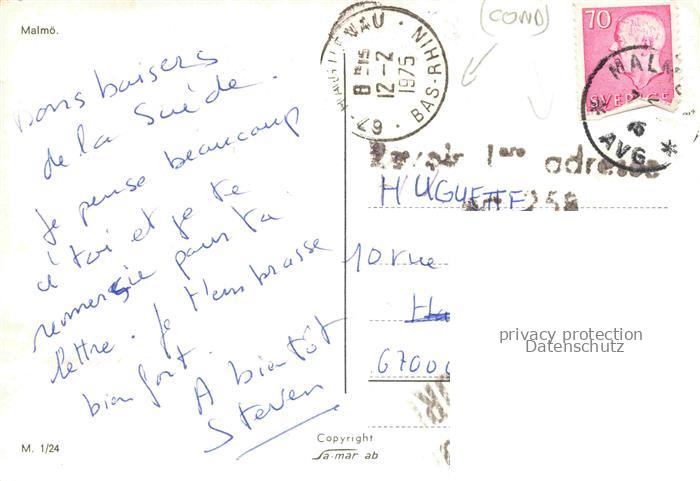 Malmö.
bons baisers
de la Suède.
Je pense beaucoup
à toi et je te
remercie pour ta
lettre. Je t'embrasse
bien fort.
A bientôt
Steven
M. 1/24
Copyright
Sa-mar ab
HAGUENAU
8H15
12-2
1975
BAS-RHIN
(COND)
70
SVERIGE
MALM
AVG
1ere adresse
HUGUETTE
10 rue
67000
privacy protection
Datenschutz